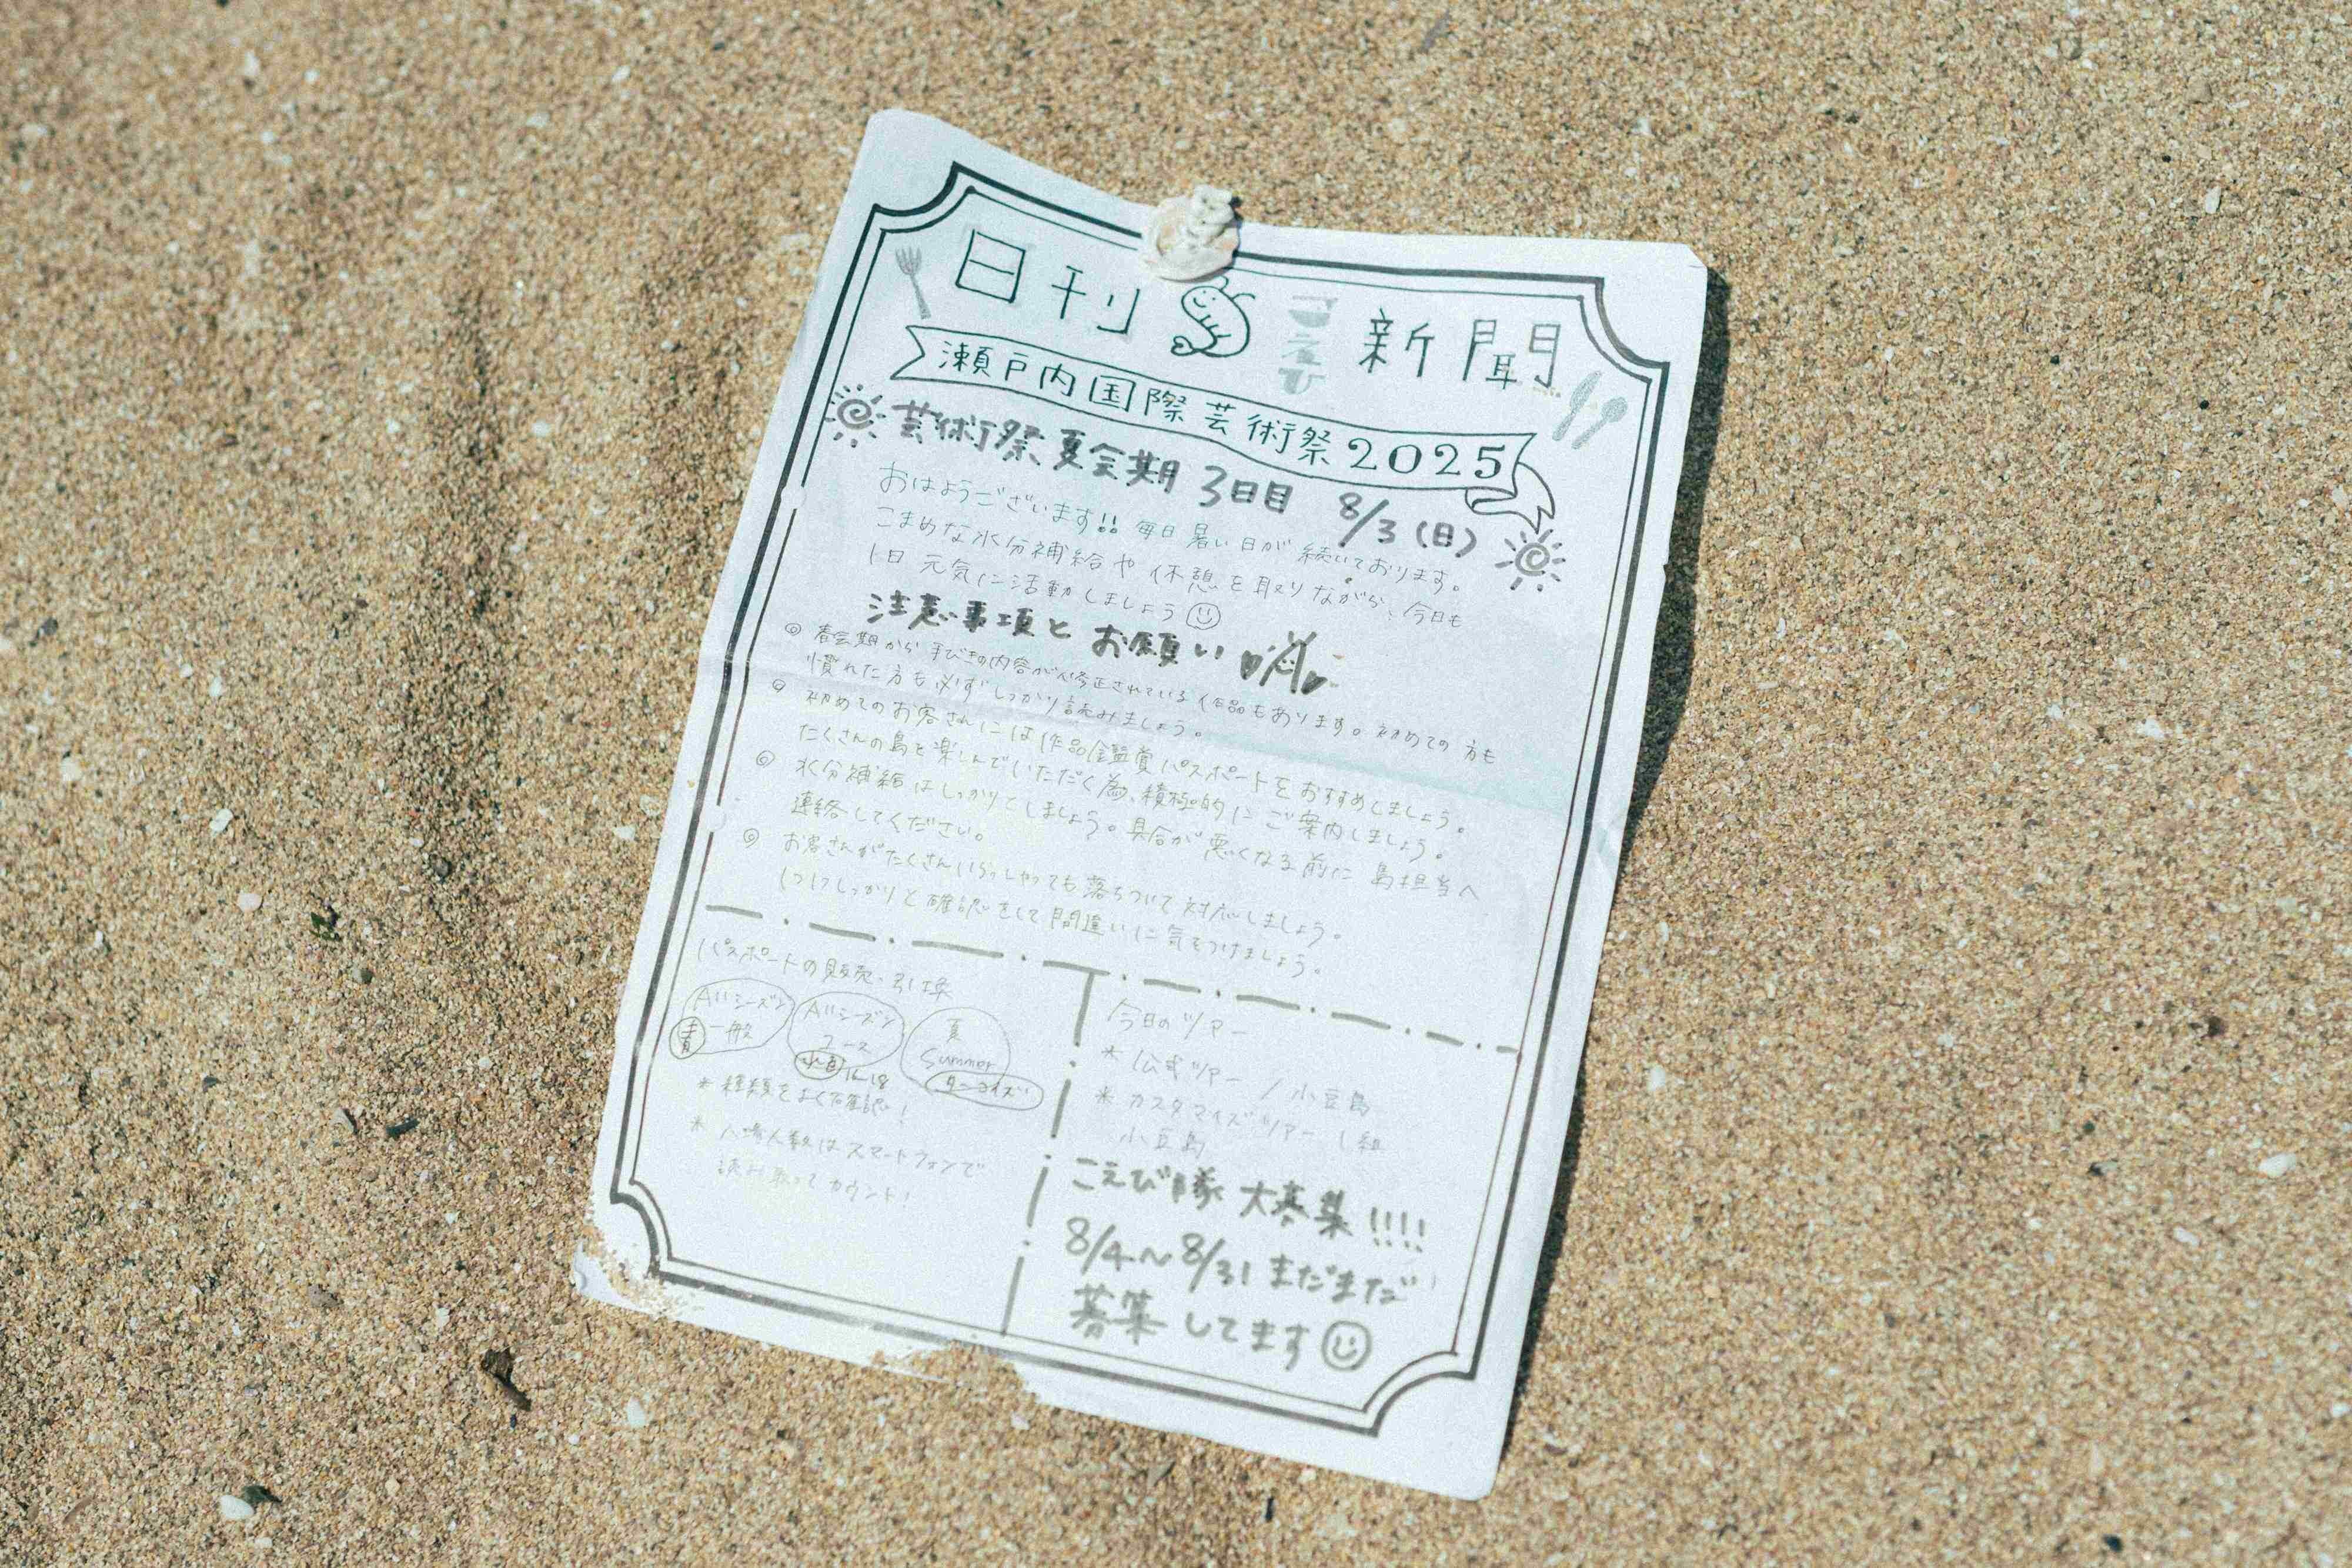 日刊 こえび 新聞
瀬戸内国際芸術祭2025
芸術祭夏会期 3日目 8/3(日)
おはようございます!! 毎日暑い日が続いております。
こまめな水分補給や休憩を取りながら、今日も
1日元気に活動しましょう
注意事項とお願い
◎ 春会期から手びきの内容が修正されている作品もあります。初めての方も
慣れた方も必ずしっかり読みましょう。
◎ 初めてのお客さんには作品鑑賞パスポートをおすすめしましょう。
たくさんの島を楽しんでいただく為、積極的にご案内しましょう。
◎ 水分補給はしっかりとしましょう。具合が悪くなる前に島担当へ
連絡してください。
◎ お客さんがたくさんいらっしゃっても落ちついて対応しましょう。
1つ1つしっかりと確認をして間違いに気をつけましょう。
パスポートの販売・引換
Allシーズン
一般
青
Allシーズン
ユース
16-18
夏
Summer
ターコイズ
* 種類をよく確認!
* 入場人数はスマートフォンで
読み取ってカウント!
今日のツアー
* 公式ツアー / 小豆島
* カスタマイズツアー 1組
小豆島
こえび隊 大募集!!!!
8/4~8/31 まだまだ
募集してます